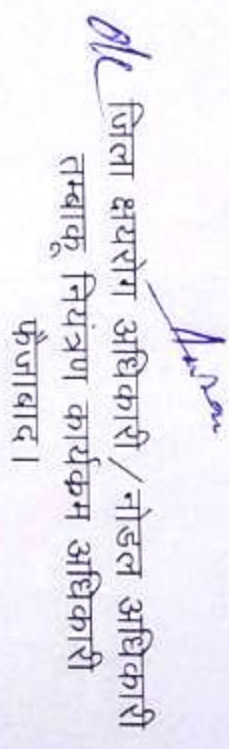 जिला क्षयरोग अधिकारी / नोडल अधिकारी
तम्बाकू नियंत्रण कार्यकम अधिकारी
फैजाबाद।